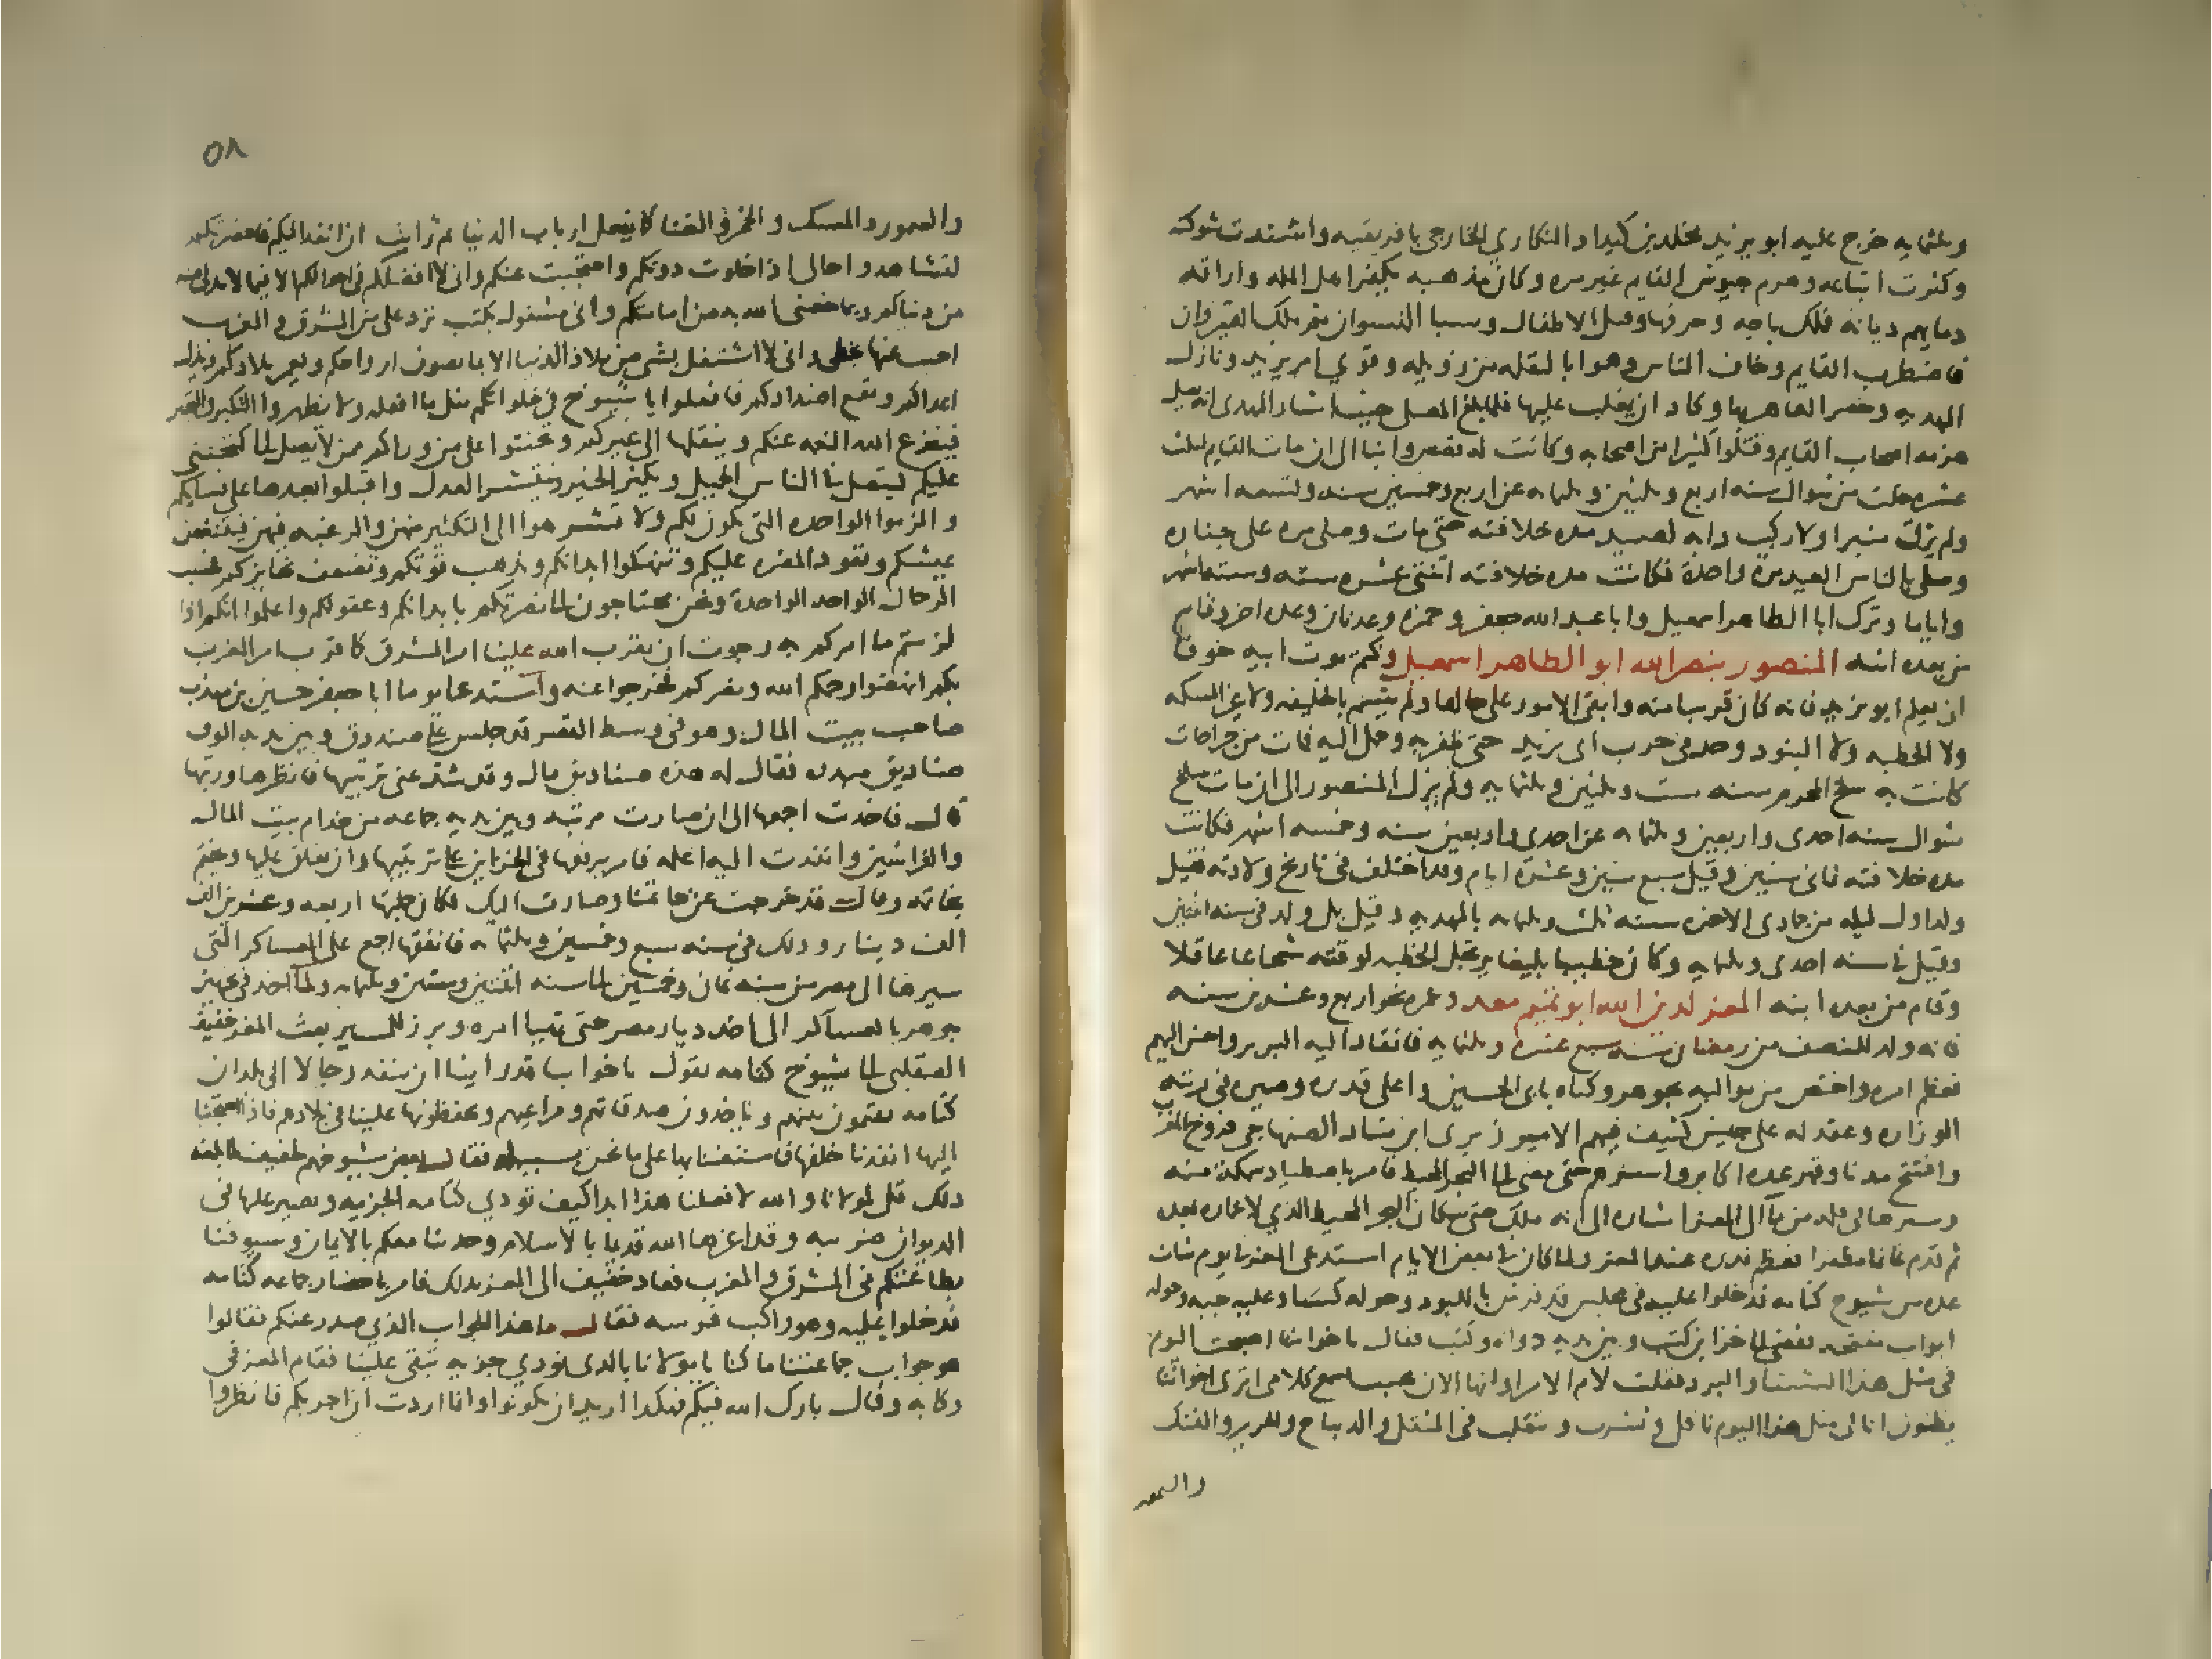 وثلثمايه خرج عليه ابو يزيد مخلد بن كيداد النكاري الخارجي بافريقيه واشتدت شوكته
وكثرت اتباعه وهزم جيوش القايم غير مره وكان مذهبه تكفير اهل المله واراقه
دمايهم ديانه فملك باجه وحرقها وقتل الاطفال وسبا النسوان ثم ملك القيروان
فاضطرب القايم وخاف الناس وهموا بالنقله من زويله وقوي امر يزيد ونازل
المهديه وحصر القاهر بها وكاد ان يغلب عليها فلما بلغ المصلى حيث اشار المهدى انه يصل
هزمه اصحاب القايم وقتلوا كثيرا من اصحابه وكانت له قصص وانبا الى ان مات القايم لثلث
عشره خلت من شوال سنه اربع وثلثين وثلثمايه عن اربع وخمسين سنه وتسعه اشهر
ولم يرق منبرا ولا ركب دابه لصيد مده خلافته حتى مات وصلى مره على جنازه
وصلى بالناس العيد مره واحدة فكانت مده خلافته اثنتى عشره سنه وسته اشهر
واياما وترك ابا الطاهر اسمعيل وابا عبد الله جعفر وحمزه وعدنان وعده اخر وقام
من بعده ابنه المنصور بنصر الله ابو الطاهر اسمعيل وكتم موت ابيه خوفا
ان يعلم ابو يزيد فانه كان قريبا منه وابقى الامور على حالها ولم يتسم بالخليفه ولا غير السكه
ولا الخطبه ولا البنود وجد في حرب ابى يزيد حتى ظفر به وحمل اليه فمات من جراحات
كانت به سلخ المحرم سنه ست وثلثين وثلثمايه ولم يزل المنصور الى ان مات سلخ
شوال سنه احدى واربعين وثلثمايه عن احدى واربعين سنه وخمسه اشهر فكانت
مده خلافته ثمانى سنين وقيل سبع سنين وعشره ايام وقد اختلف في تاريخ ولادته فقيل
ولد اول ليله من جمادى الاخره سنه ثلث وثلثمايه بالمهديه وقيل بل ولد في سنه اثنتين
وقيل في سنه احدى وثلثمايه وكان خطيبا بليغا يرتجل الخطبه لوقته شجاعا عاقلا
وقام من بعده ابنه المعز لدين الله ابو تميم معد وعمره نحو اربع وعشرين سنه
فانه ولد للنصف من رمضان سنه سبع عشره وثلثمايه فانقاد اليه البربر واحسن اليهم
فعظم امره واختص من مواليه بجوهر وكناه بابى الحسين واعلى قدره وصيره في رتبه
الوزاره وعقد له على جيش كثيف فيهم الامير زيرى ابن مناد الصنهاجي فدوخ المغرب
وافتتح مدنا وقهر عده اكابر واسرهم حتى مضى لما البحر المحيط فامر باصطياد سمكة منه
وسيرها في قله من ما الى المعز اشاره الى انه ملك حتى سكان البحر المحيط الذي لا عماره بعده
ثم قدم غانما مظفرا فعظم قدره عند المعز ولما كان في بعض الايام استدعى المعز في يوم شات
عده من شيوخ كتامه فدخلوا عليه في مجلس قد فرش باللبود وحوله كسا وعليه جبه وحوله
ابواب مفتحه تفضى لما خزاين كتب وبين يديه دواه وكتب فقال يا اخواننا اصبحت اليوم
في مثل هذا الشتا والبرد فقلت لام الامرا وانها الان بحيث تسمع كلامى اترى اخواننا
يظنون انا في مثل هذا اليوم ناكل ونشرب ونتقلب في المثقل والديباج والحرير والفنك
والسمور
٥٨
والسمور والمسك والخمر والغنا كما يفعل ارباب الدنيا ثم رايت ان انفذ اليكم فاحضرتكم
لتشاهدوا حالى اذا خلوت دونكم واحتجبت عنكم وانى لا افضلكم في احوالكم الا فيما لا بد لى منه
من دنياكم وبما خصنى الله به من امامتكم وانى مشغول بكتب ترد على من المشرق والمغرب
اجيب عنها بخطى وانى لا اشتغل بشى من ملاذ الدنيا الا بما يصون ارواحكم ويعمر بلادكم ويذل
اعداكم ويقمع اضدادكم فافعلوا يا شيوخ في خلواتكم مثل ما افعله ولا تظهروا التكبر والتجبر
فينزع الله النعمه عنكم وينقلها الى غيركم وتحننوا على من وراكم ممن لا يصل لما كتحننى
عليكم ليتصل في الناس الجميل ويكثر الخير وينتشر العدل واقبلوا بعدها على نسايكم
والزموا الواحده التى تكون لكم ولا تشرهوا الى التكثير منهن والرغبه فيهن فيتنغص
عيشكم وتعود المضره عليكم وتنهكوا ابدانكم وتذهب قوتكم وتضعف نحايزكم فحسب
الرجال الواحد الواحدة ونحن محتاجون لما نصرتكم بابدانكم وعقولكم واعلموا انكم اذا
لزمتم ما امركم به رجوت ان يقرب الله علينا امر المشرق كما قرب امر المغرب
بكم انهضوا رحمكم الله ونصركم فخرجوا عنه واستدعا يوما ابا جعفر حسين بن مهذب
صاحب بيت المال وهو في وسط القصر قد جلس على صندوق وبين يديه الوف
صناديق مبدده فقال له هذه صناديق مال وقد شذ عنى ترتيبها فانظرها ورتبها
قال فاخذت اجمعها الى ان صارت مرتبه وبين يديه جماعه من خدام بيت المال
والفراشين وانفذت اليه اعلمه فامر برفعها في الخزاين على ترتيبها وان يغلق عليها ويختم
بخاتمه وقال قد خرجت عن خاتمنا وصارت اليك فكان جملتها اربعه وعشرين الف
الف دينار وذلك في سنه سبع وخمسين وثلثمايه فانفقها اجمع على العساكر التى
سيرها الى مصر من سنه ثمان وخمسين لما سنه اثنتين وستين وثلثمايه ولما اخذ في تجهيز
جوهر بالعساكر الى اخذ ديار مصر حتى تهيا امره وبرز للمسير بعث المعز خفيف
الصقلبى لما شيوخ كتامه يقول يا اخواننا قد راينا ان ننفذ رجالا الى بلدان
كتامه يقيمون بينهم وياخذون صدقاتهم ومراعيهم ويحفظونها علينا في بلادهم فاذا احتجنا
اليها انفذنا خلفها فاستعنا بها على ما نحن بسبيله فقال بعض شيوخهم لخفيف لما بلغه
ذلك قل لمولانا والله لا فعلنا هذا ابدا كيف تودي كتامه الجزيه ويصير عليها في
الديوان ضريبه وقد اعزها الله قديما بالاسلام وحديثا معكم بالايمان وسيوفنا
بطاعتكم في المشرق والمغرب فعاد خفيف الى المعز بذلك فامر باحضار جماعه كتامه
فدخلوا عليه وهو راكب فرسه فقال ما هذا الجواب الذي صدر عنكم فقالوا
هو جواب جماعتنا ما كنا يا مولانا بالذى نودي جزيه تبقى علينا فقام المعز في
ركابه وقال بارك الله فيكم فهكذا اريد ان تكونوا وانما اردت ان اجربكم فانظروا